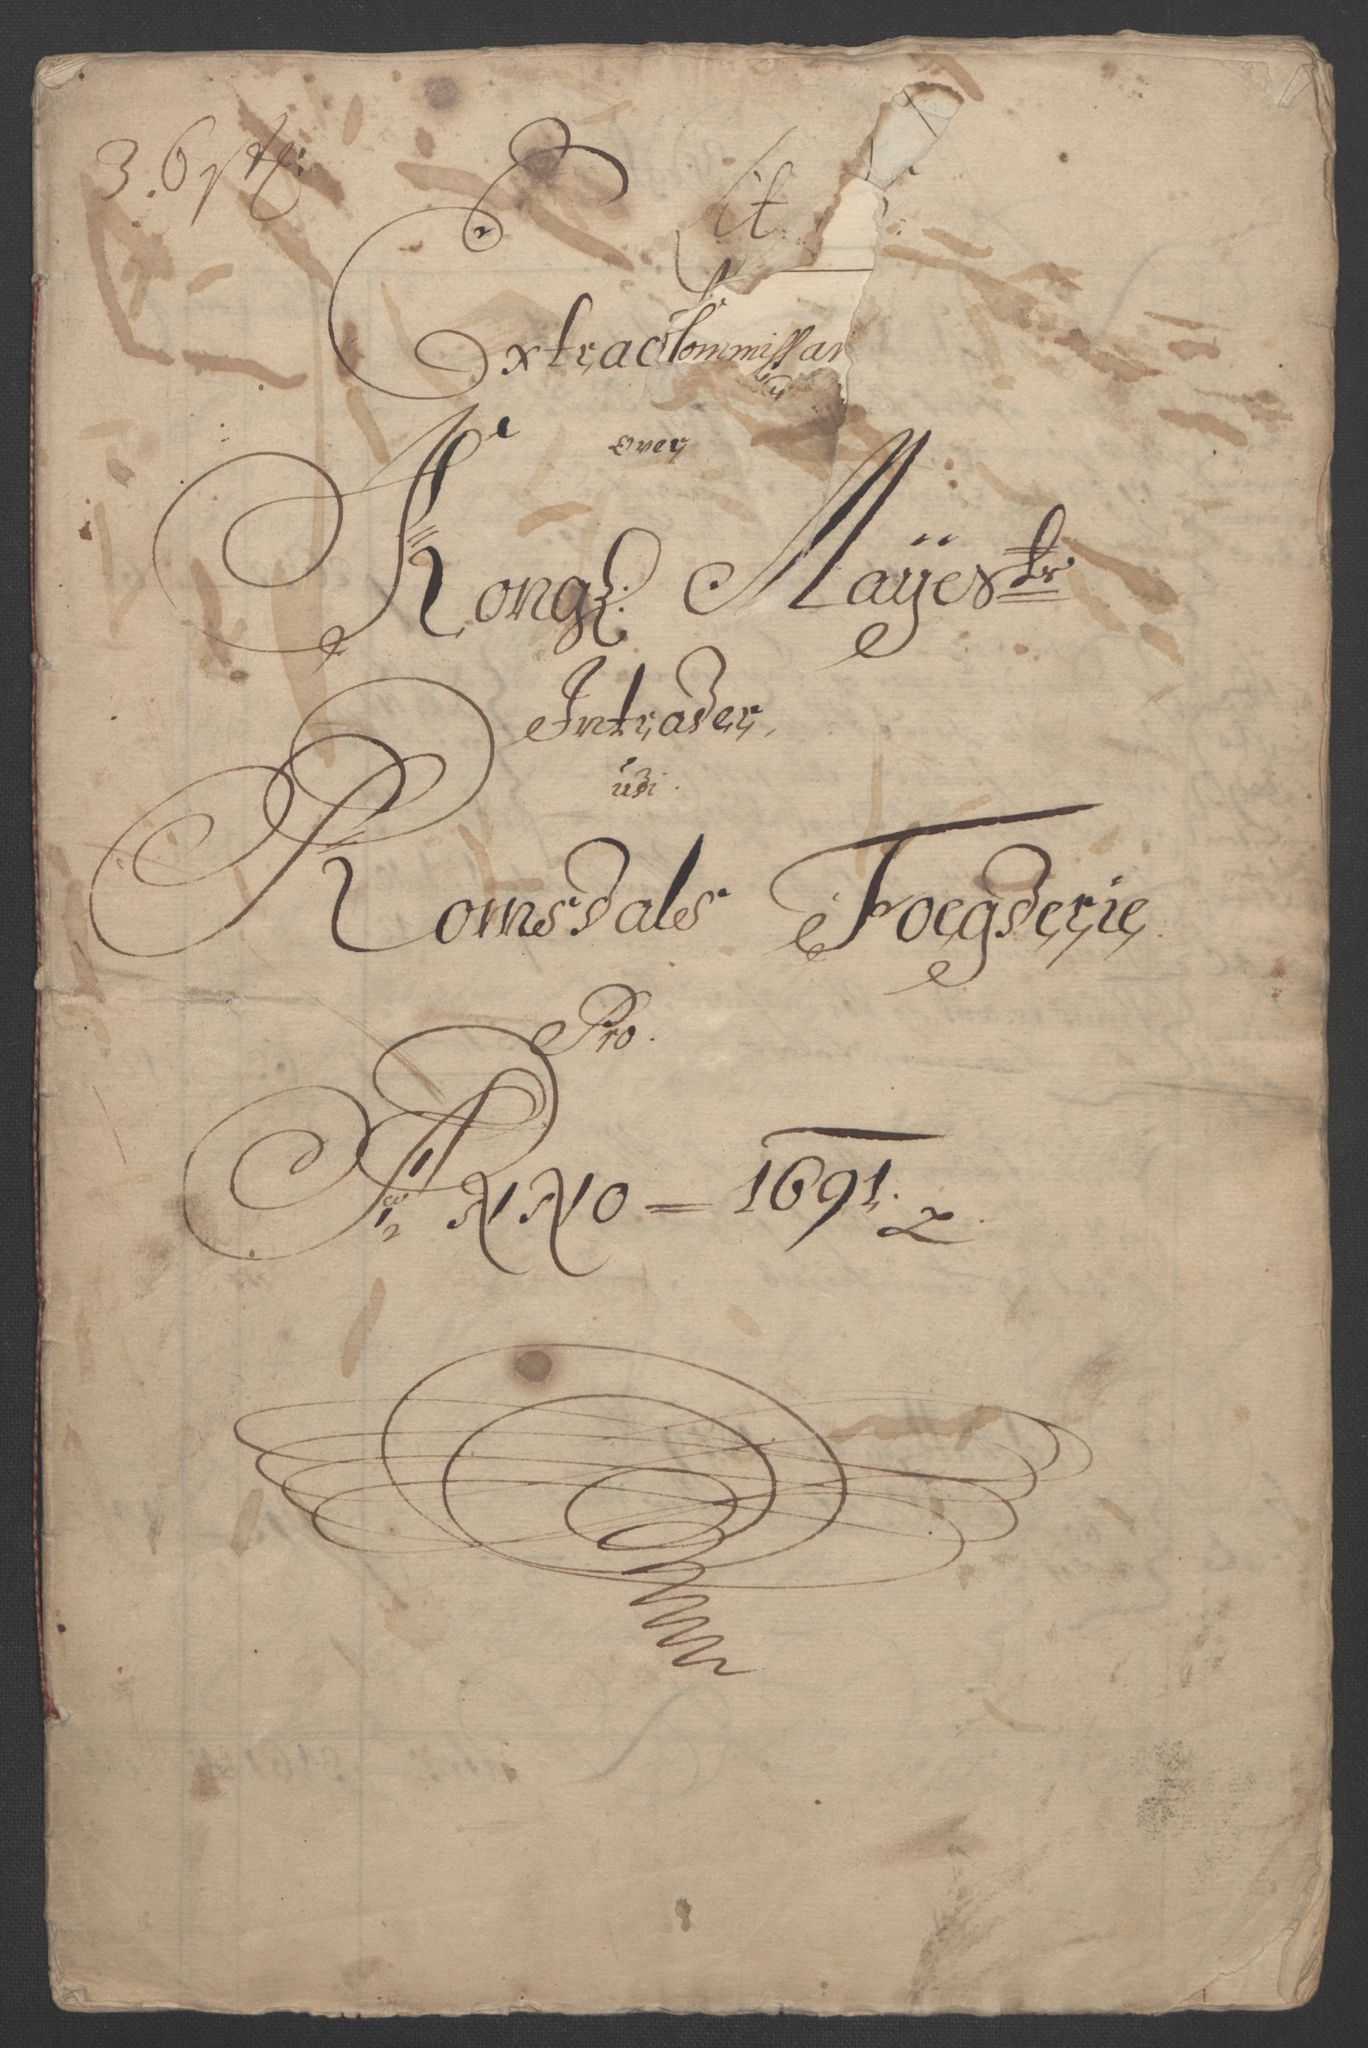 Extract Commissari
over
Kongl: Mayestz
Intrader,
udi.
Romsdals Foegderie
Pro.
ANNO = 1691.